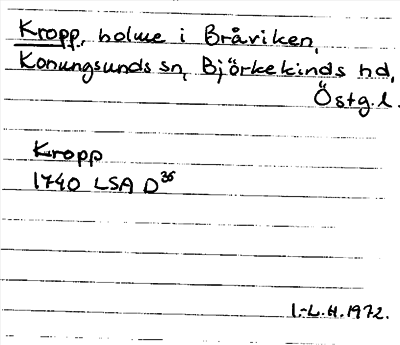 Kropp, holme i Bråviken,
Konungsunds sn, Björkekinds hd,
Östg.l.
Kropp
1740 LSA D36
I.-L.H.1972.